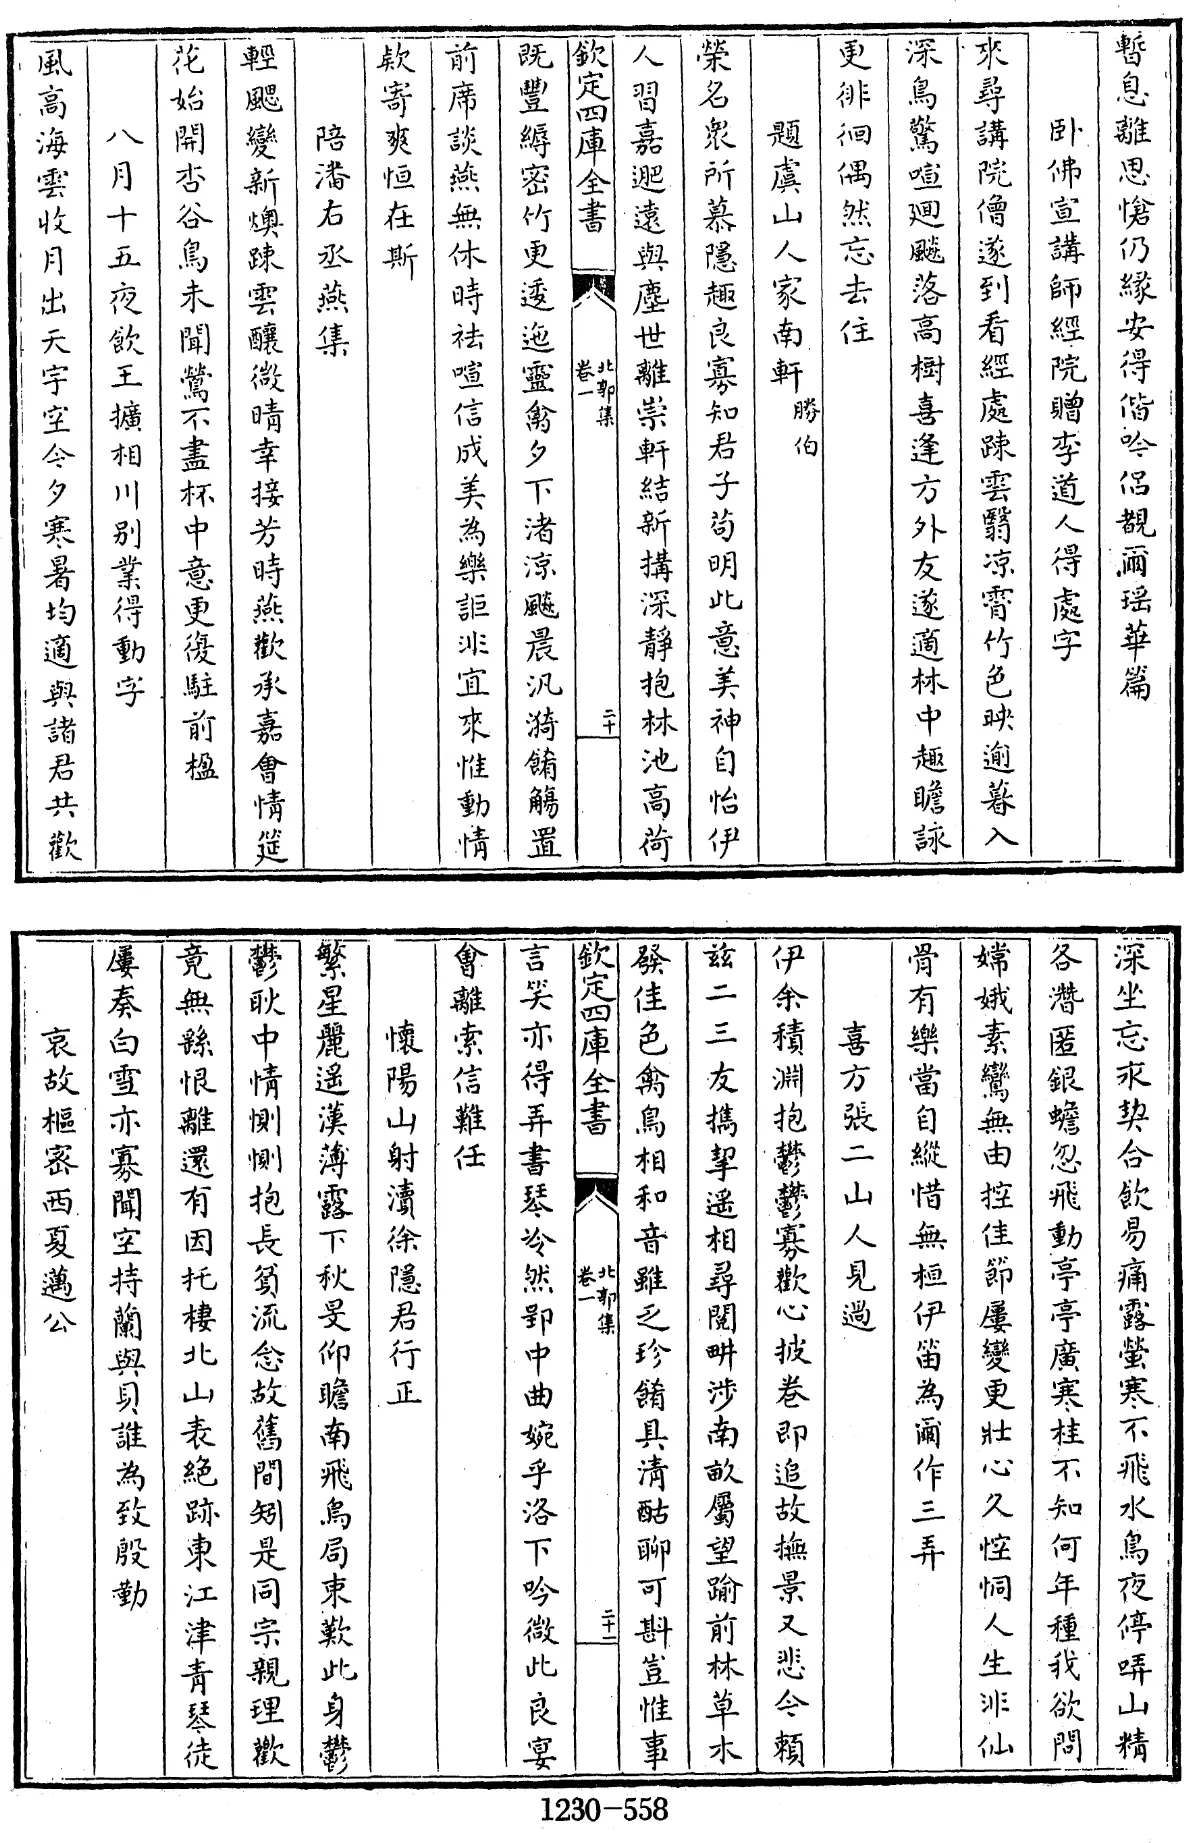 暫息離思愴仍緣安得偕吟侶覩爾瑶華篇
卧佛宣講師經院贈李道人得處字
來尋講院僧遂到看經處踈雲翳凉霄竹色映逾暮入
深鳥驚喧廻飈落高樹喜逢方外友遂適林中趣瞻詠
更徘徊偶然忘去住
題虞山人家南軒勝伯
榮名衆所慕隱趣良寡知君子苟明此意美神自怡伊
人習嘉遯遠與塵世離崇軒結新搆深靜抱林池高荷
欽定四庫全書
北郭集
卷一
二十
既豐縟密竹更逶迤靈禽夕下渚涼飈晨汎漪餚觴置
前席談燕無休時祛喧信成美為樂詎非宜來惟動情
欵寄爽恒在斯
陪潘右丞燕集
輕颸變新燠踈雲釀微晴幸接芳時燕歡承嘉會情筵
花始開杏谷鳥未聞鶯不盡杯中意更優駐前楹
八月十五夜飲王擴相川别業得動字
風高海雲收月出天宇空今夕寒暑均適與諸君共歡
深坐忘求契合飲易痛露螢寒不飛水鳥夜停哢山精
各潛匿銀蟾忽飛動亭亭廣寒桂不知何年種我欲問
嫦娥素鸞無由控佳節屢變更壯心久悾恫人生非仙
骨有樂當自縱惜無桓伊笛為爾作三弄
喜方張二山人見過
伊余積淵抱鬱鬱寡歡心披卷即追故撫景又悲今頼
兹二三友擕挈遥相尋閱畊涉南畝屬望踰前林草木
發佳色禽鳥相和音雖乏珍餚具清酤聊可斟豈惟事
欽定四庫全書
北郭集
卷一
二十一
言笑亦得弄書琴泠然郢中曲婉乎洛下吟微此良宴
會離索信難任
懷陽山射瀆徐隱君行正
繁星麗遥漢薄露下秋旻仰瞻南飛烏局束歎此身鬱
鬱耿中情惻惻抱長貧流念故舊間矧是同宗親理歡
竟無繇恨離還有因托棲北山表絶跡東江津青琴徒
屢奏白雪亦寡聞空持蘭與貝誰為致殷勤
哀故樞密西夏邁公
1230-558